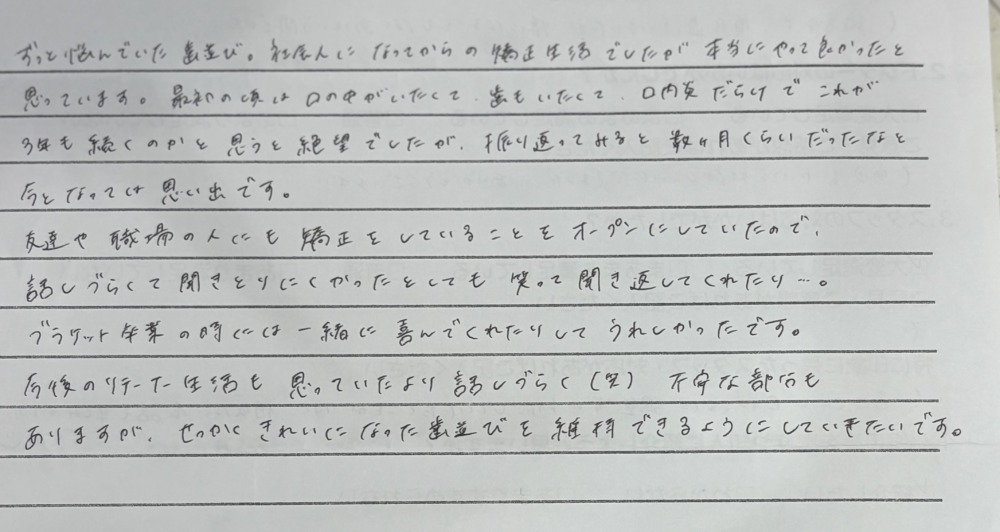 ずっと悩んでいた歯並び。社会人になってからの矯正生活でしたが本当にやって良かったと
思っています。最初の頃は口の中がいたくて、歯もいたくて、口内炎だらけでこれが
3年も続くのかと思うと絶望でしたが、振り返ってみると数ヶ月くらいだったなと
今となっては思い出です。
友達や職場の人にも矯正をしていることをオープンにしていたので、
話しづらくて聞きとりにくかったとしても笑って聞き返してくれたり…。
ブラケット卒業の時には一緒に喜んでくれたりしてうれしかったです。
今後のリテーナー生活も思っていたより話しづらく(笑) 不安な部分も
ありますが、せっかくきれいになった歯並びを維持できるようにしていきたいです。